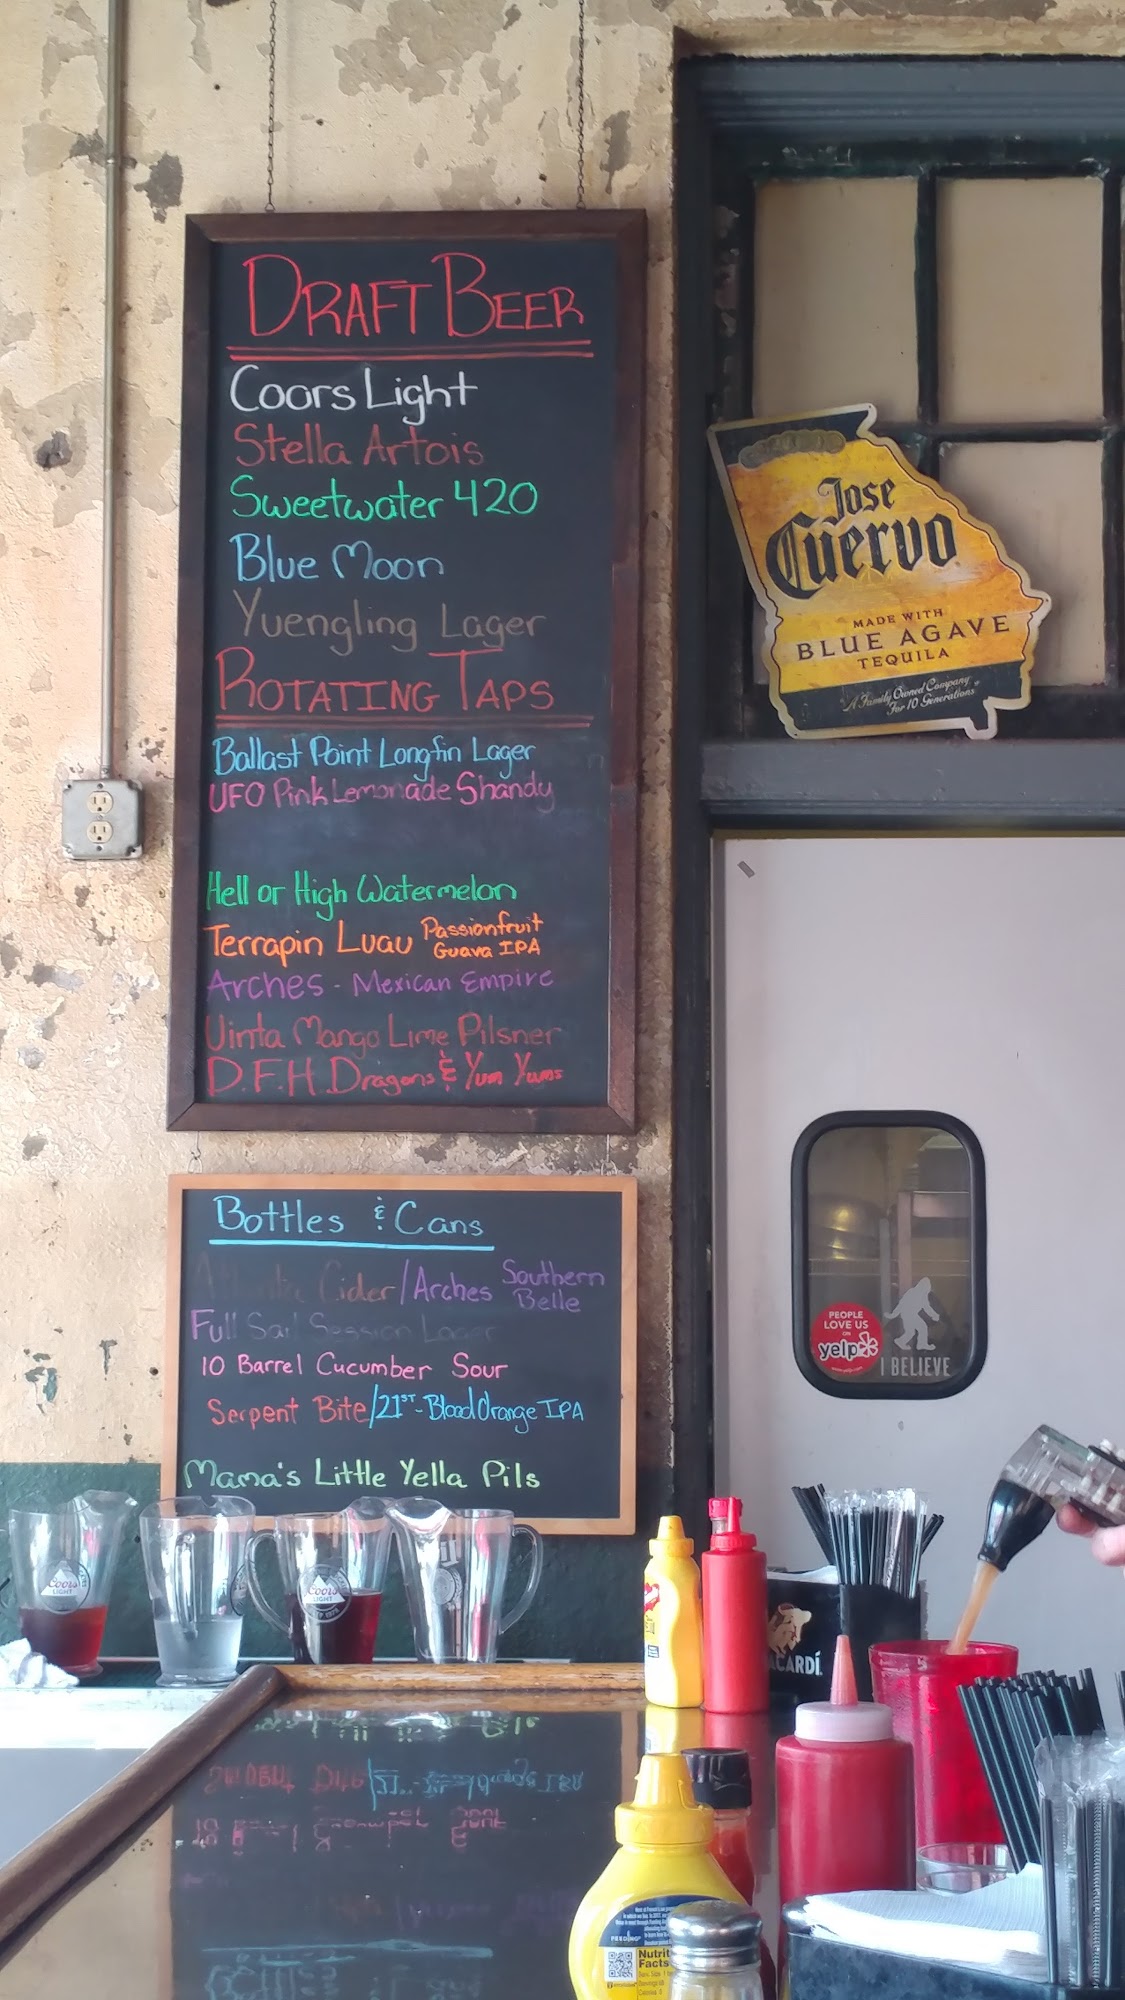 DRAFT BEER
Coors Light
Stella Artois
Sweetwater 420
Blue Moon
Yuengling Lager
ROTATING TAPS
Ballast Point Longfin Lager
UFO Pink Lemonade Shandy
Hell or High Watermelon
Terrapin Luau Passionfruit
Guava IPA
Arches - Mexican Empire
Uinta Mango Lime Pilsner
D.F.H. Dragons & Yum Yums
Bottles & Cans
Cider/Arches Southern
Belle
Full Sail Session Lager
10 Barrel Cucumber Sour
Serpent Bite/21ST-Blood Orange IPA
Mama's Little Yella Pils
Jose
Cuervo
MADE WITH
BLUE AGAVE
TEQUILA
"A Family Owned Company
For 10 Generations"
PEOPLE
LOVE US
ON
yelp
I BELIEVE
Coors
LIGHT
Coors
LIGHT
BACARDÍ
Nutrition
Facts